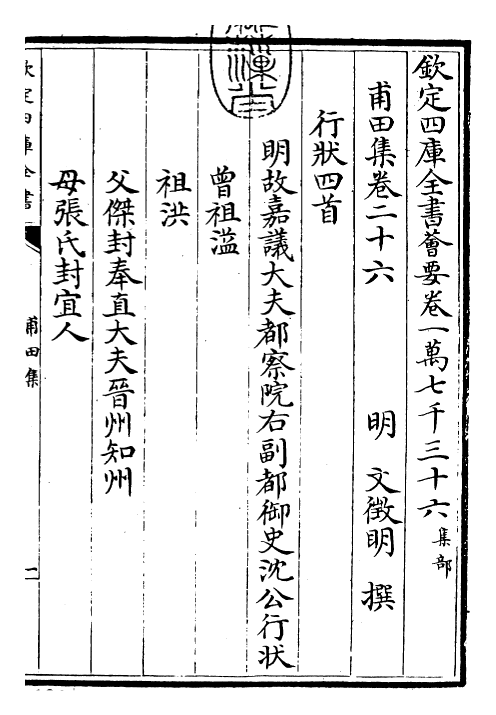 欽定四庫全書薈要卷一萬七千三十六 集部
甫田集卷二十六 明 文徵明 撰
行狀四首
明故嘉議大夫都察院右副都御史沈公行狀
曾祖溢
祖洪
父傑封奉直大夫晉州知州
母張氏封宜人
欽定四庫全書
甫田集